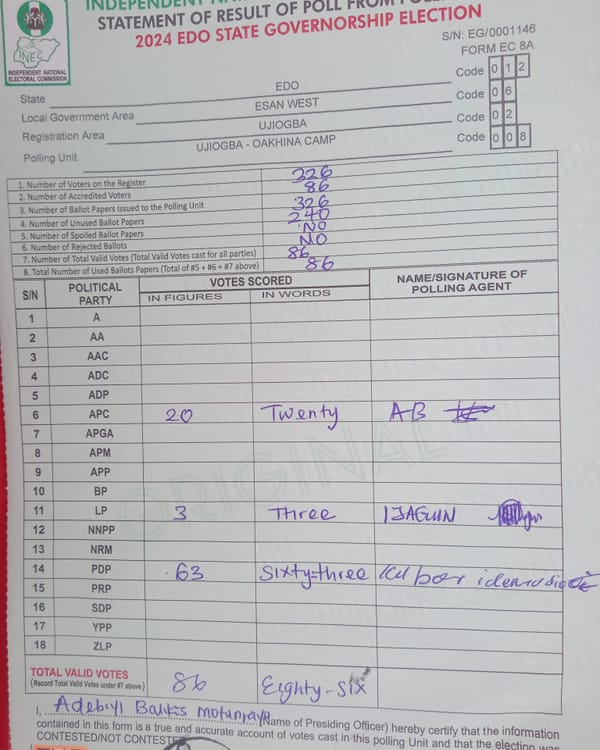 INDEPENDENT NA
STATEMENT OF RESULT OF POLL FROM POLL
2024 EDO STATE GOVERNORSHIP ELECTION
INEC
INDEPENDENT NATIONAL
ELECTORAL COMMISSION
S/N: EG/0001146
FORM EC 8A
State EDO Code 0 1 2
Local Government Area ESAN WEST Code 0 6
Registration Area UJIOGBA Code 0 2
Polling Unit UJIOGBA - OAKHINA CAMP Code 0 0 8
1. Number of Voters on the Register 326
2. Number of Accredited Voters 86
3. Number of Ballot Papers Issued to the Polling Unit 326
4. Number of Unused Ballot Papers 240
5. Number of Spoiled Ballot Papers NO
6. Number of Rejected Ballots NO
7. Number of Total Valid Votes (Total Valid Votes cast for all parties) 86
8. Total Number of Used Ballots Papers (Total of #5 + #6 + #7 above) 86
S/N POLITICAL PARTY VOTES SCORED NAME/SIGNATURE OF POLLING AGENT
IN FIGURES IN WORDS
1 A
2 AA
3 AAC
4 ADC
5 ADP
6 APC 20 Twenty AB
7 APGA
8 APM
9 APP
10 BP
11 LP 3 Three IJAGUN
12 NNPP
13 NRM
14 PDP 63 Sixty=three
15 PRP
16 SDP
17 YPP
18 ZLP
TOTAL VALID VOTES 86 Eighty-Six
(Record Total Valid Votes under #7 above)
ORIGINAL
I, Adebiyi Balkis Motunrayo (Name of Presiding Officer) hereby certify that the information
contained in this form is a true and accurate account of votes cast in this polling Unit and that the election was
CONTESTED/NOT CONTESTED